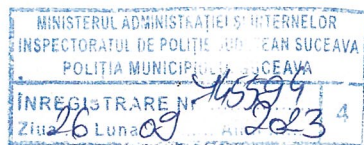 MINISTERUL ADMINISTRAȚIEI ȘI INTERNELOR
INSPECTORATUL DE POLIȚIE JUDEȚEAN SUCEAVA
POLIȚIA MUNICIPIULUI SUCEAVA
ÎNREGISTRARE Nr. 145594
4
Ziua 26 Luna 09 Anul 2023